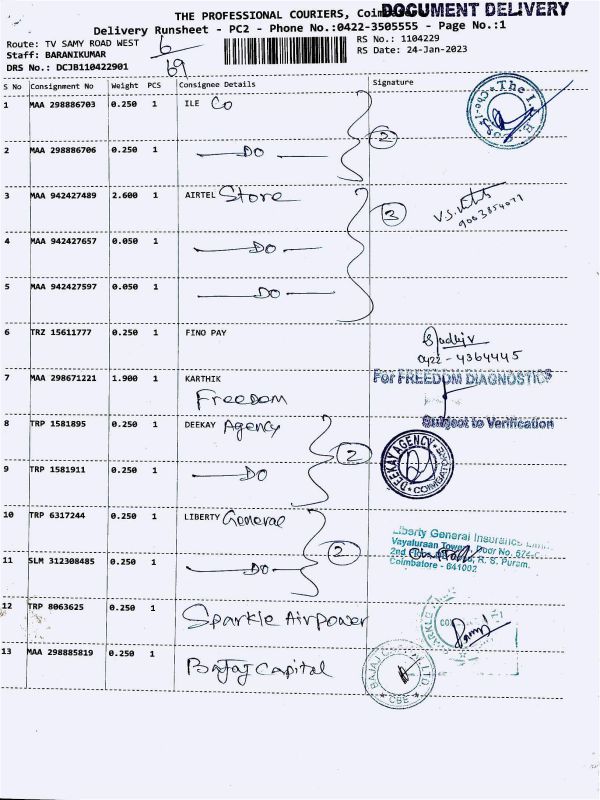 THE PROFESSIONAL COURIERS, Coimbatore
DOCUMENT DELIVERY
Delivery Runsheet - PC2 - Phone No.:0422-3505555 - Page No.:1
Route: TV SAMY ROAD WEST
6
RS No.: 1104229
Staff: BARANIKUMAR
RS Date: 24-Jan-2023
DRS No.: DCJB110422901
69
S No Consignment No Weight PCS Consignee Details Signature
1 MAA 298886703 0.250 1 ILE Co
2
2 MAA 298886706 0.250 1 DO
3 MAA 942427489 2.600 1 AIRTEL Store
3
4 MAA 942427657 0.050 1 DO
5 MAA 942427597 0.050 1 DO
6 TRZ 15611777 0.250 1 FINO PAY
0422-4364445
7 MAA 298671221 1.900 1 KARTHIK
For FREEDOM DIAGNOSTICS
Freedom
Subject to Verification
8 TRP 1581895 0.250 1 DEEKAY Agency
2
DEEKAY AGENCY
COIMBATORE
9 TRP 1581911 0.250 1 DO
10 TRP 6317244 0.250 1 LIBERTY General
2
Liberty General Insurance
Door No. 624-C
2nd R. S. Puram,
Coimbatore - 641002
11 SLM 312308485 0.250 1 DO
12 TRP 8063625 0.250 1 Sparkle Airpower
13 MAA 298885819 0.250 1 Bajaj Capital
BAJAJ CAPITAL LTD
CBE